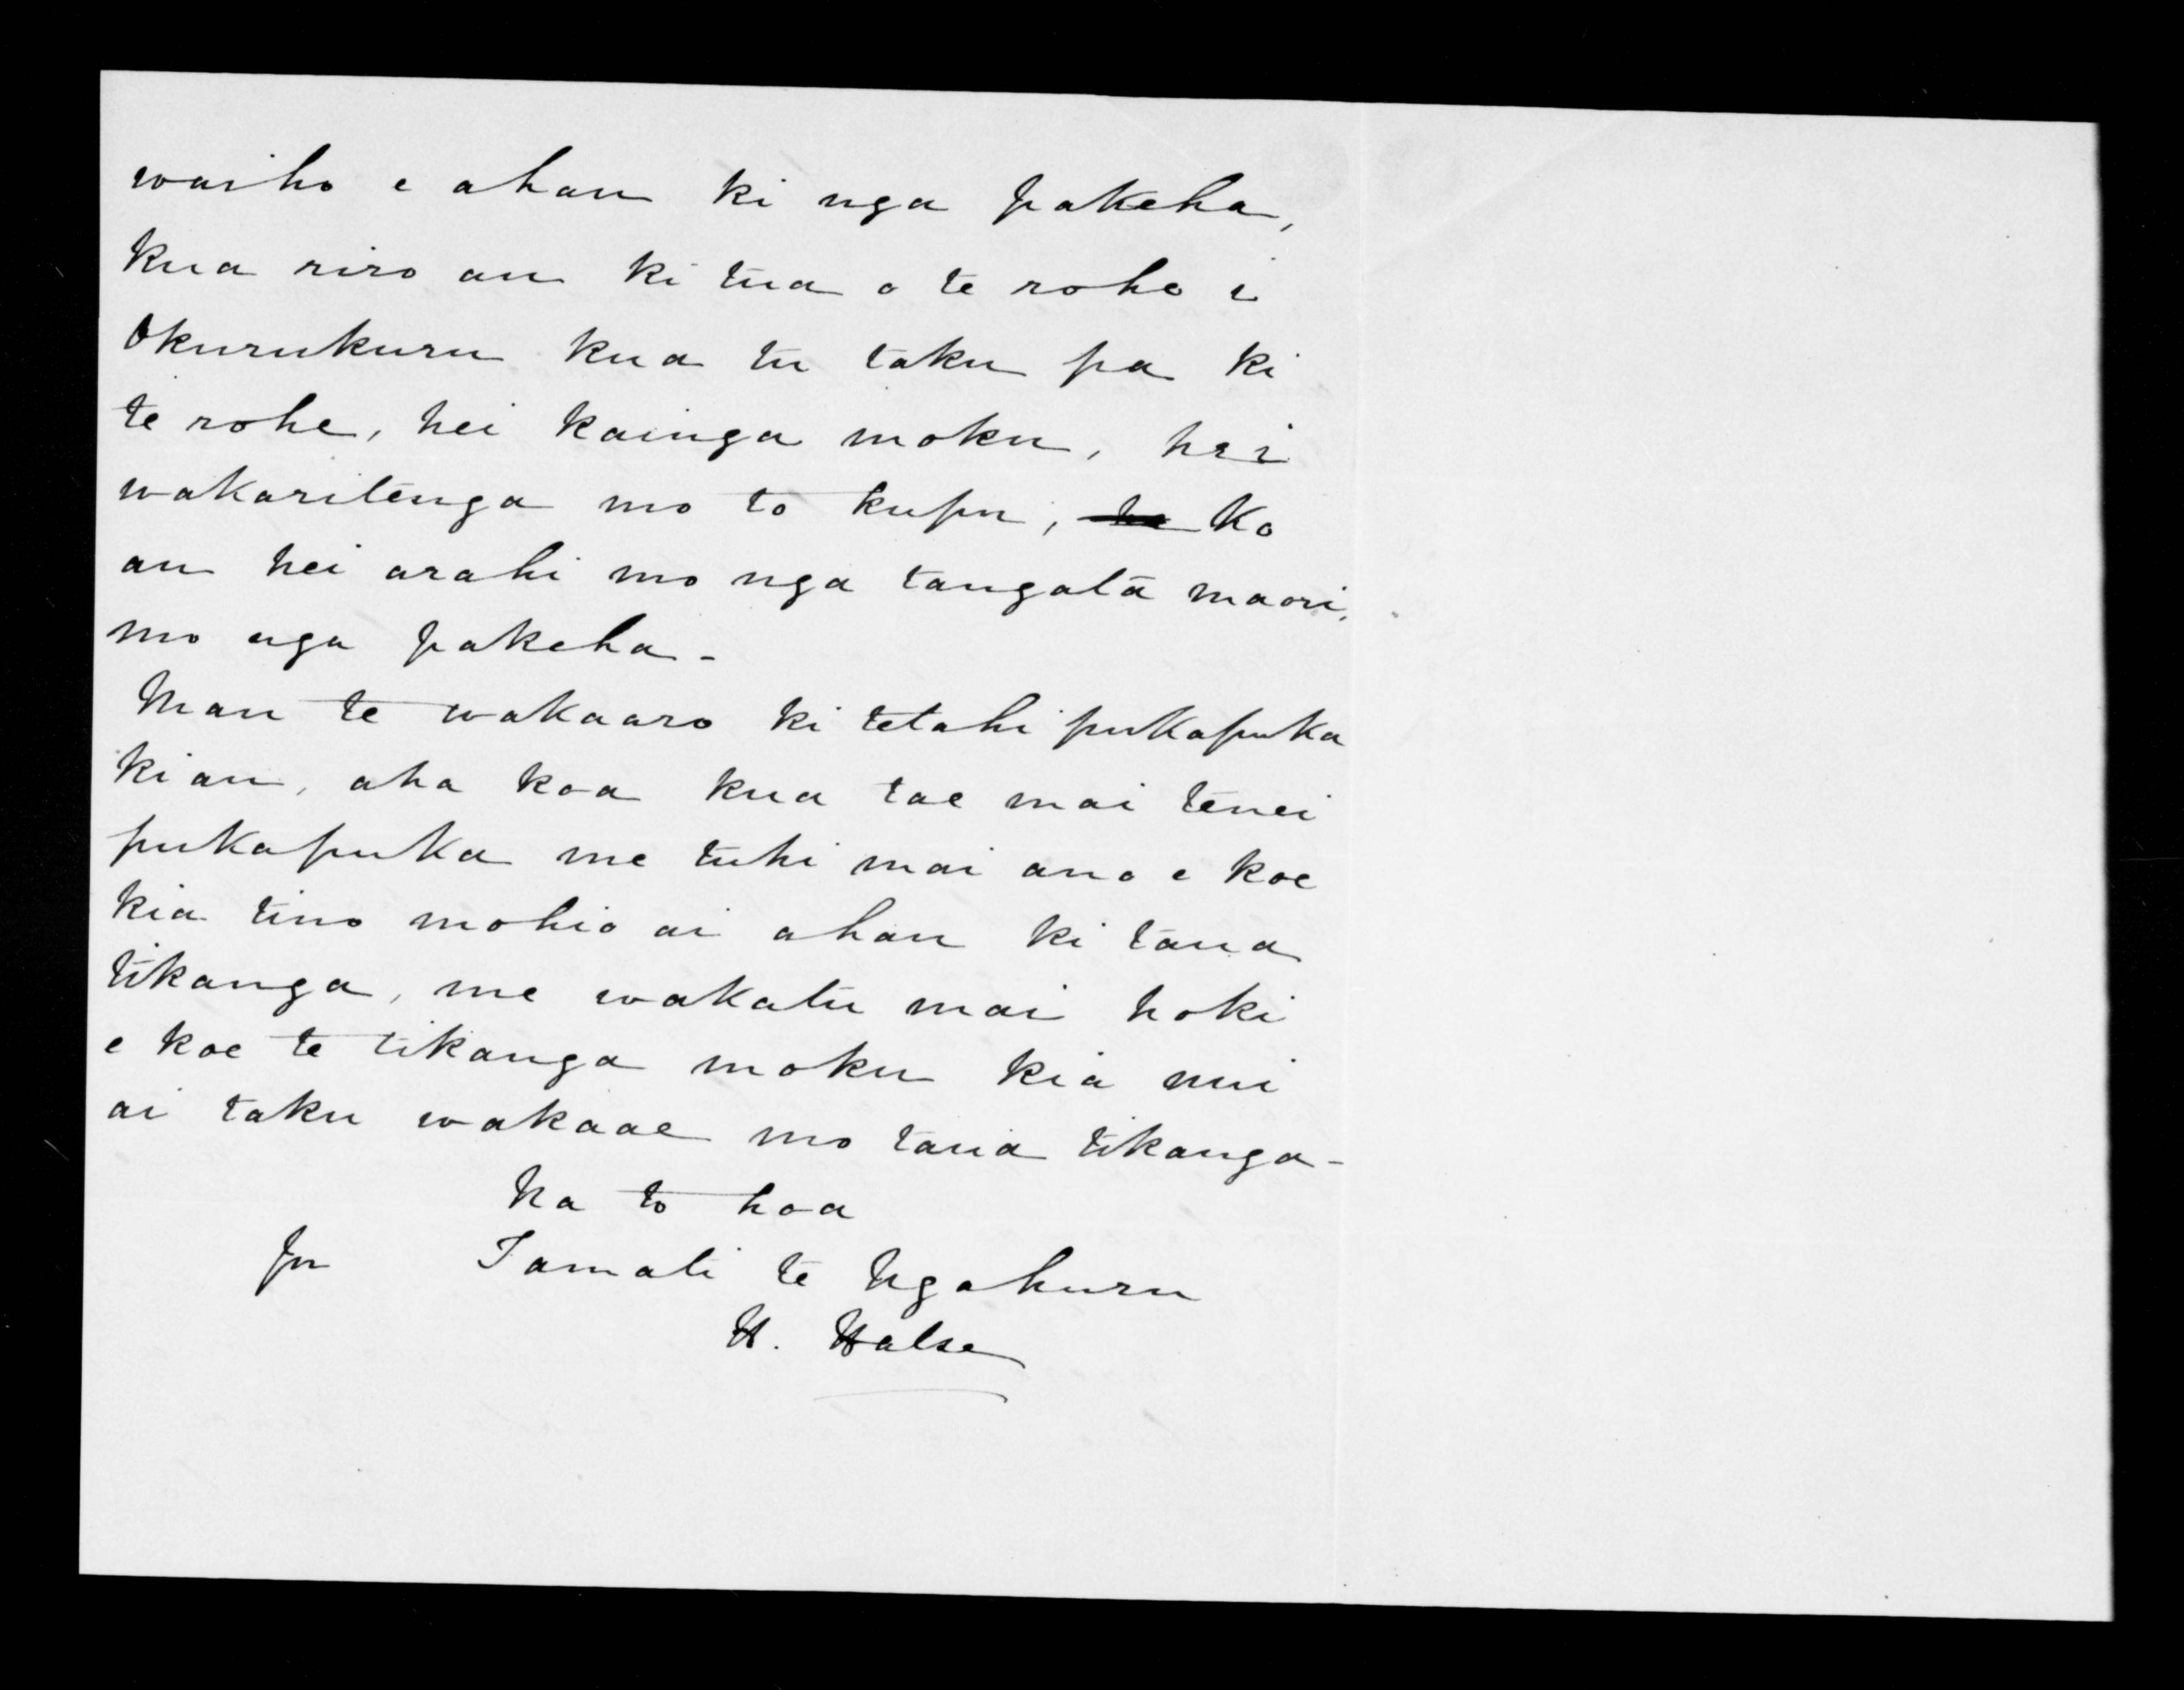 waiho e ahau ki nga pakeha,
kua riro au ki tua o te rohe i
Okurukuru kua tu taku pa ki
te rohe, hei kainga moku, hei
wakaritenga mo to kupu, Ko
au hei arahi mo nga tangata maori,
mo nga pakeha -
Mau te wakaaro ki tetahi pukapuka
ki au, aha koa kua tae mai tenei
pukapuka me tuhi mai ano e koe
kia tino mohio ai ahau ki taua
tikanga, me wakatu mai hoki
e koe te tikanga moku kia nui
ai taku wakaae mo taua tikanga -
Na to hoa
pn Tamati te Ngahuru
H. Halse